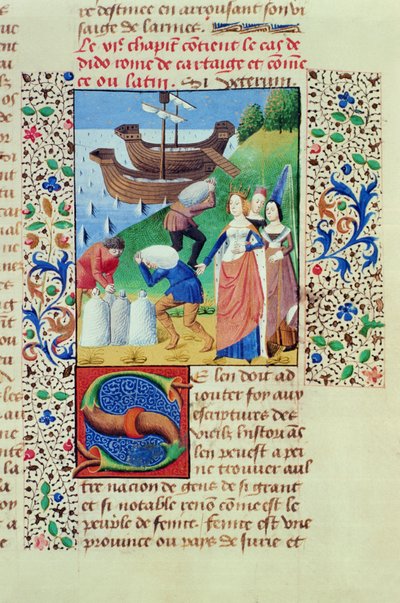 re destinee en arrousant son vi
saige de larmes.
Le vi.e chapitre contient le cas de
dido rome de cartaige et comẽ
ce ou latin. Si veterum.
Se len doit ad
iouter foy aux
escriptures des
vieilz historiãs
len peust a pei
ne trouuer aul
tre nacion de gens de si grant
et si notable renõ cõme est le
peuple de fenice. fenice est vne
prouince ou pays de surie et